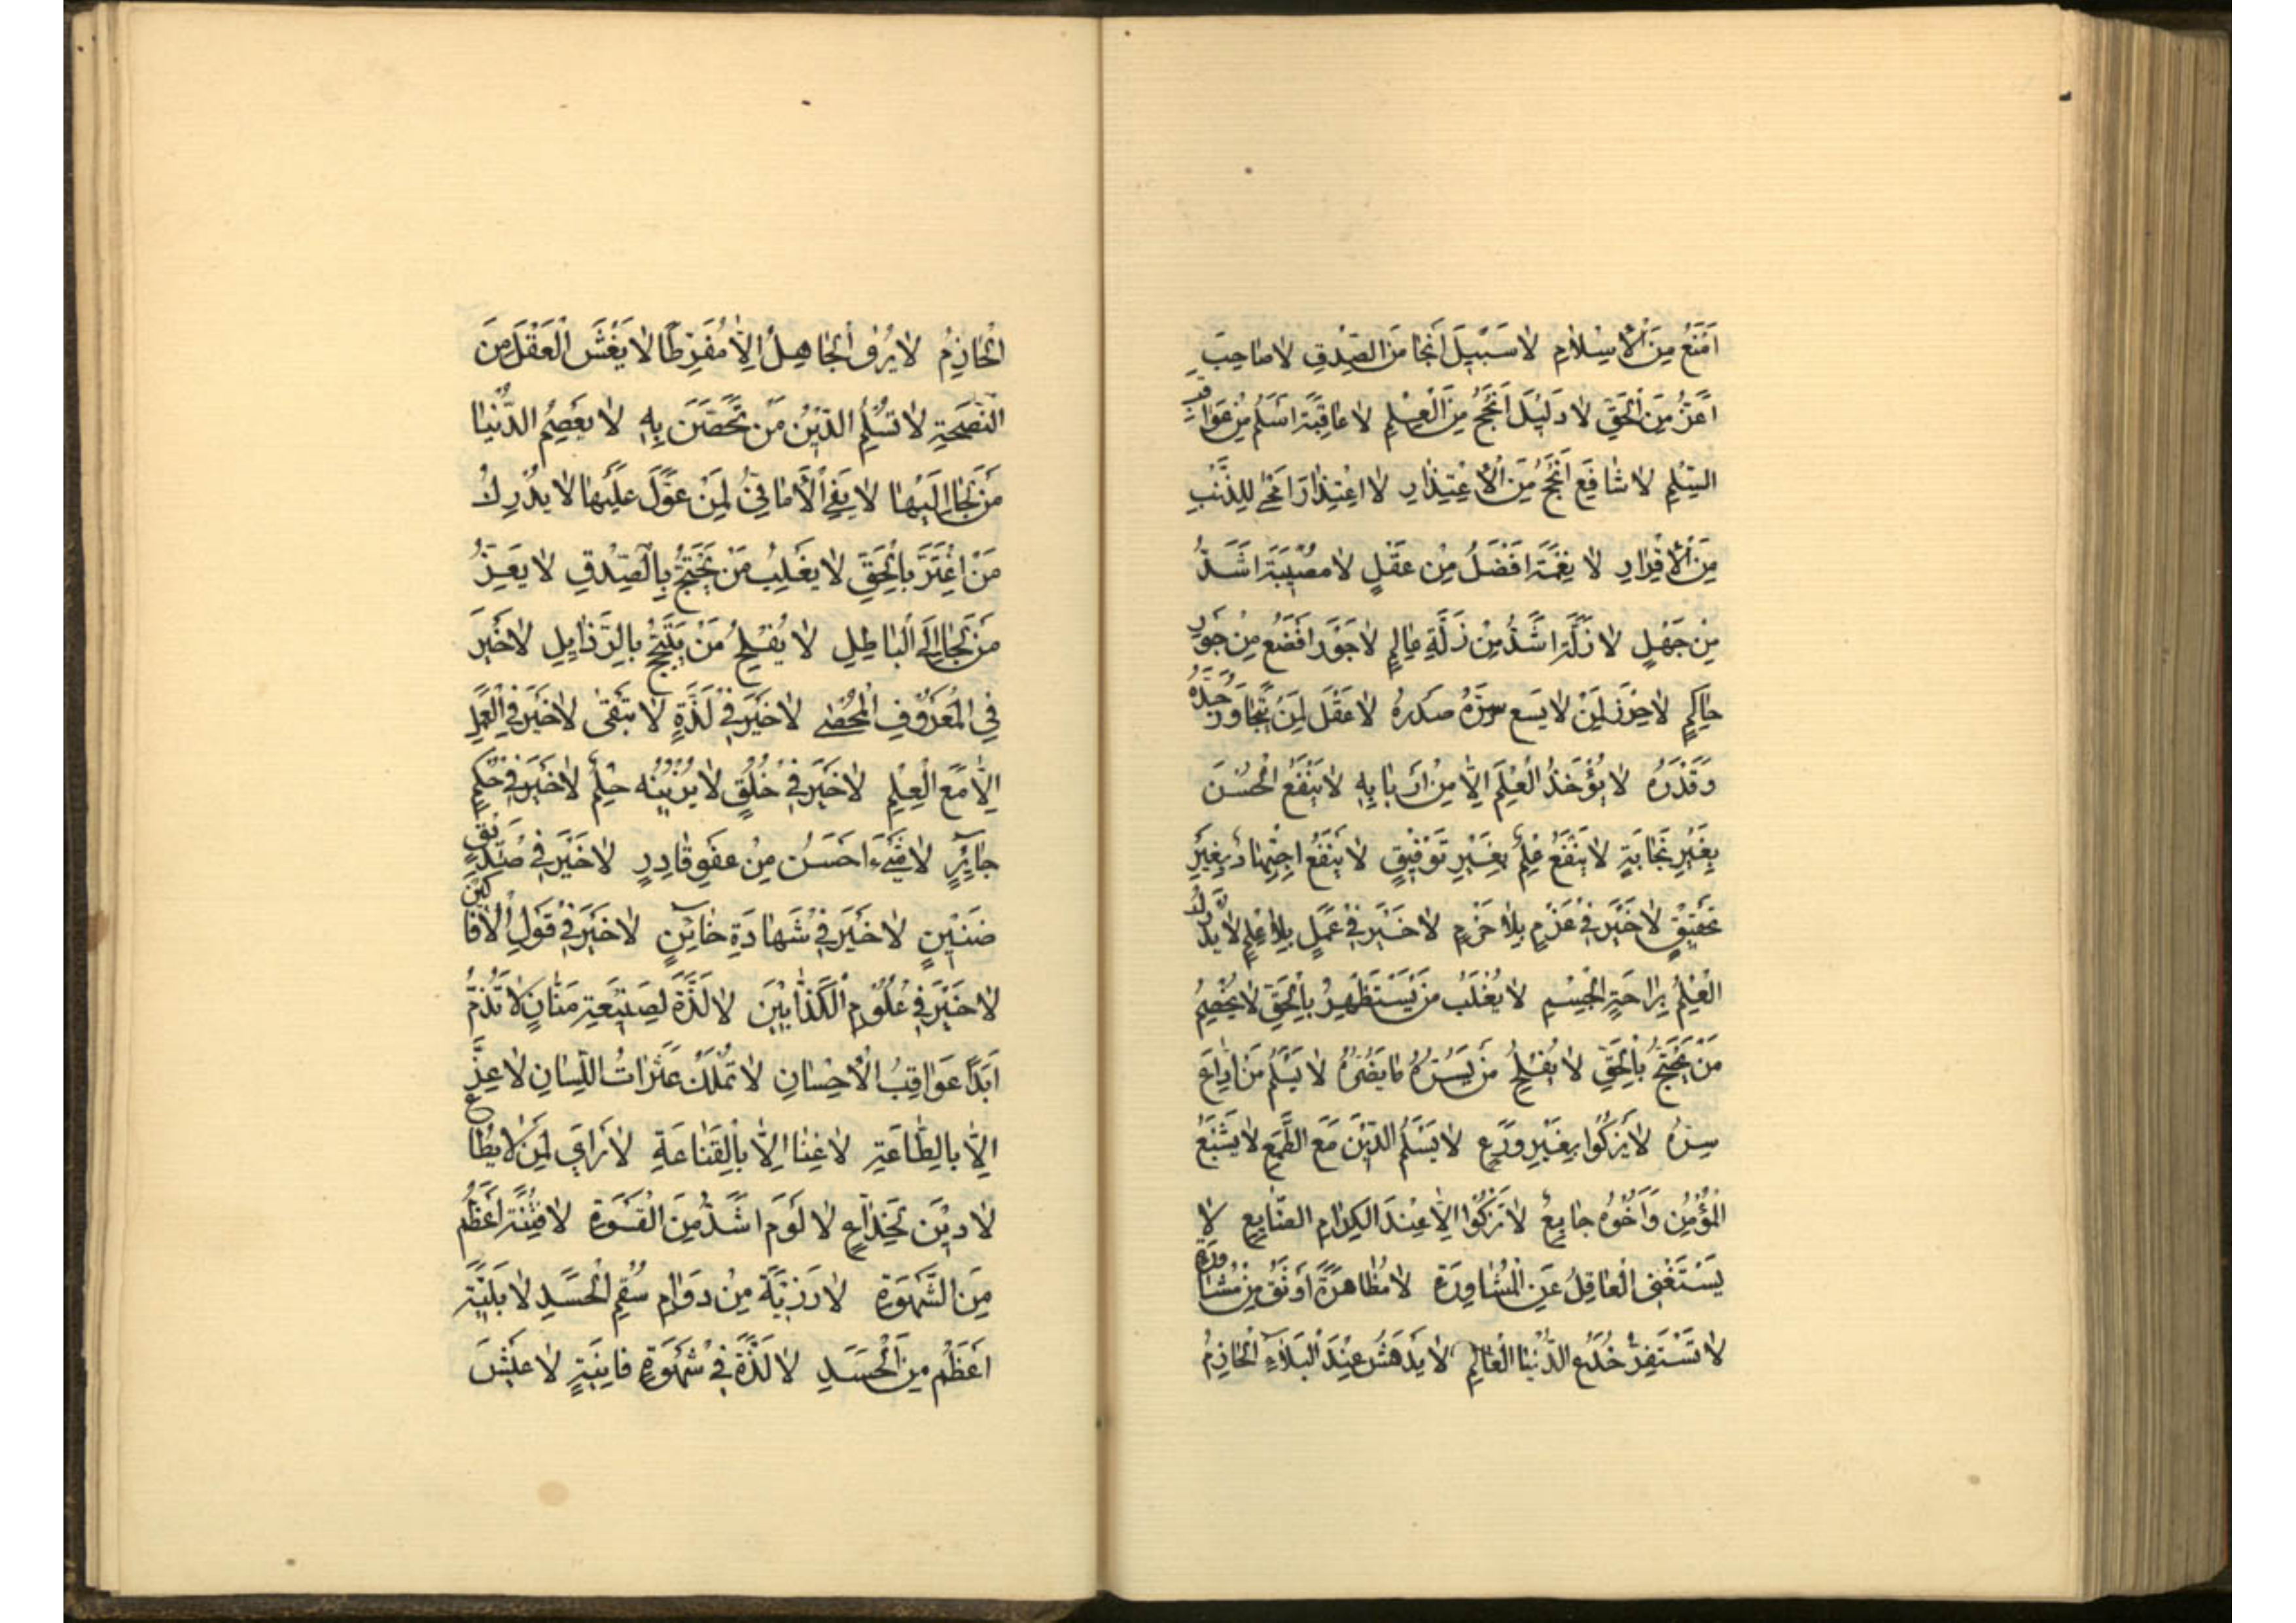 اَمْنَعُ مِنَ الْاِسْلَامِ لَا سَبِيلَ اَنْجَا مِنَ الصِّدْقِ لَا صَاحِبَ
اَعَزُّ مِنَ الْحَقِّ لَا دَلِيلَ اَنْجَحُ مِنَ الْعِلْمِ لَا عَاقِبَةَ اَسْلَمُ مِنْ عَوَاقِبِ
السِّلْمِ لَا شَافِعَ اَنْجَحُ مِنَ الْاِعْتِذَارِ لَا اعْتِذَارَ اَمْحٰى لِلذَّنْبِ
مِنَ الْاِقْرَارِ لَا نِعْمَةَ اَفْضَلُ مِنْ عَقْلٍ لَا مُصِيبَةَ اَشَدُّ
مِنْ جَهْلٍ لَا زَلَّةَ اَشَدُّ مِنْ زَلَّةِ عَالِمٍ لَا جَوْرَ اَفْضَعُ مِنْ جَوْرِ
حَاكِمٍ لَا حِرْزَ لِمَنْ لَا يَسَع سِرَّهُ صَدْرُهُ لَا عَقْلَ لِمَنْ تَجَاوَزَ حَدَّهُ
وَقَدْرَهُ لَا يُؤْخَذُ الْعِلْمَ اِلَّا مِنْ اَرْبَابِهِ لَا يَنْفَعُ الْحُسْنَ
بِغَيْرِ نَجَابَةٍ لَا يَنْفَعُ عِلْمٌ بِغَيْرِ تَوْفِيقٍ لَا يَنْفَعُ اجْتِهَادٌ بِغَيْرِ
تَحْقِيقٍ لَا خَيْرَ فِي عَزْمٍ بِلَا حَزْمٍ لَا خَيْرَ فِي عَمَلٍ بِلَا عِلْمٍ لَا يُدْرَكُ
الْعِلْمُ بِرَاحَةِ الْجِسْمِ لَا يُغْلَبُ مَنْ يَسْتَظْهِرُ بِالْحَقِّ لَا يُخْصَمُ
مَنْ يَحْتَجُّ بِالْحَقِّ لَا يُفْلِحُ مَنْ يَسُرُّهُ مَا يَضُرُّهُ لَا يَسْلَمُ مَنْ اَذَاعَ
سِرَّهُ لَا يَزْكُوا بِغَيْرِ وَرَعٍ لَا يَسْلَمُ الدِّيْنَ مَعَ الطَّمَعِ لَا يَشْبَعُ
الْمُؤْمِنُ وَاَخُوهُ جَايِعٌ لَا تَزْكُوا اِلَّا عِنْدَ الْكِرَامِ الصَّنَايِعُ لَا
يَسْتَغْنِى الْعَاقِلُ عَنِ الْمُشَاوِرَةِ لَا مُظَاهَرَةً اَوْثَقُ مِنْ مُشَاوِرَةِ
لَا تَسْتَفِزُّ خُدَعُ الدُّنْيَا الْعَالِمِ لَا يَدْهَشُ عِنْدَ الْبَلَاءِ الْحَازِمُ
الْحَازِمُ لَا يُرٰى الْجَاهِلُ اِلَّا مُفَرِّطًا لَا يَغُشُّ الْعَقْلَ مَنِ
النَّصَحَةِ لَا تُسْلِمُ الدِّيْنُ مَنْ تَحَصَّنَ بِهِ لَا يَعْصِمُ الدُّنْيَا
مَنْ لَجَا اِلَيْهَا لَا يَفِي الْاَمَانِيُّ لِمَنْ عَوَّلَ عَلَيْهَا لَا يُدْرِكُ
مَنْ اعْتَزَّ بِالْحَقِّ لَا يُغْلِبُ مَنْ يَحْتَجُّ بِالصِّدْقِ لَا يَعِزُّ
مَنْ لَجَا اِلَى الْبَاطِلِ لَا يُفْلِحُ مَنْ يَتَبَجَّحُ بِالرَّذَايِلِ لَا خَيْرَ
فِي الْمَعْرُوفِ الْمُحْصٰى لَا خَيْرَ فِي لَذَّةٍ لَا تَبْقٰى لَا خَيْرَ فِي الْعَمَلِ
اِلَّا مَعَ الْعِلْمِ لَا خَيْرَ فِي خُلُقٍ لَا يُزَيِّنُهُ حِلْمٌ لَا خَيْرَ فِي حُكْمٍ
جَائِرٍ لَا شَيْءَ اَحْسَنُ مِنْ عَفْوِ قَادِرٍ لَا خَيْرَ فِي صَدِيقٍ
ضَنِيْنٍ لَا خَيْرَ فِي شَهَادَةِ خَائِنٍ لَا خَيْرَ فِي قَوْلِ الْاَفَّاكِيْنَ
لَا خَيْرَ فِي عُلُوْمِ الْكَذَّابِيْنَ لَا لَذَّةَ لِصَنِيْعَةِ مَنَّانٍ لَا تُذَمُّ
اَبَدًا عَوَاقِبُ الْاِحْسَانِ لَا تُمْلَكُ عَثَرَاتُ اللِّسَانِ لَا عِزَّ
اِلَّا بِالطَّاعَةِ لَا غِنَا اِلَّا بِالْقَنَاعَةِ لَا رَاىَ لِمَنْ لَا يُطَاعُ
لَا دِيْنَ لِخَدَّاعٍ لَا لَوْمَ اَشَدُّ مِنَ الْقَسْوَةِ لَا فِتْنَةَ اَعْظَمُ
مِنَ الشَّهْوَةِ لَا رَزِيَّةَ مِنْ دَوَامِ سُقْمِ الْحَسَدِ لَا بَلِيَّةَ
اَعْظَمُ مِنَ الْحَسَدِ لَا لَذَّةَ فِي شَهْوَةٍ فَانِيَةٍ لَا عَيْشَ